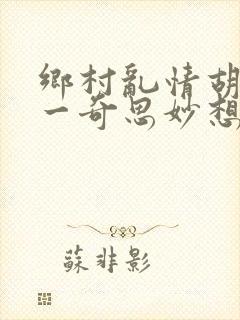 鄉村亂情胡
一奇思妙想
蘇非影